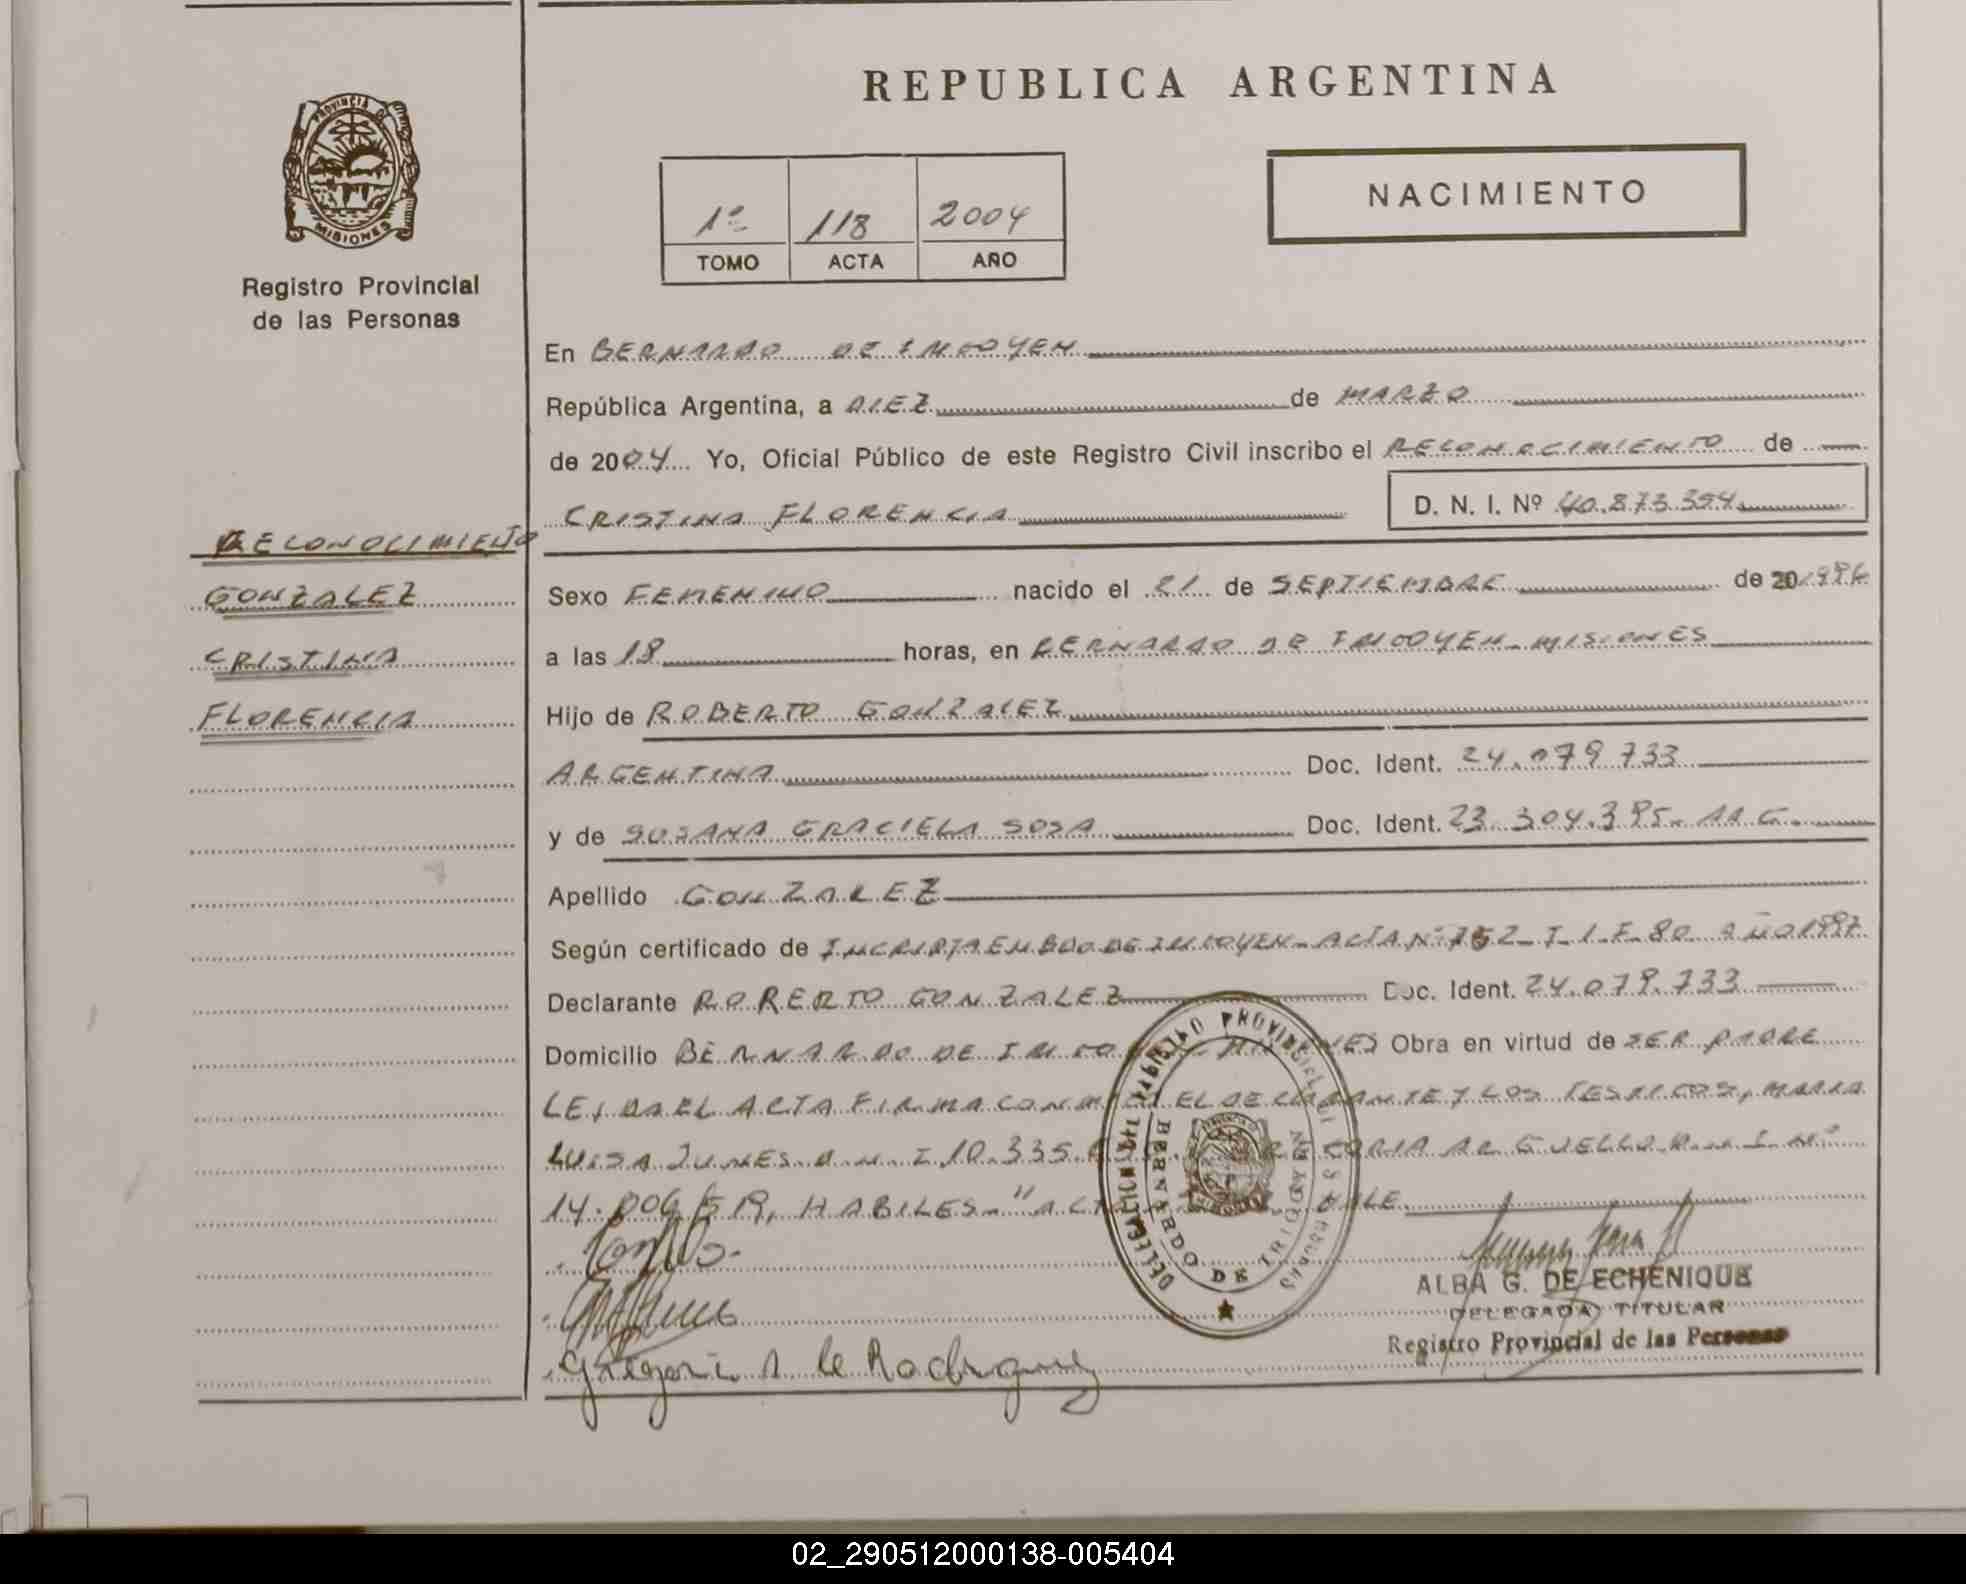 PROVINCIA DE
MISIONES
Registro Provincial
de las Personas
RECONOCIMIENTO
GONZALEZ
CRISTINA
FLORENCIA
REPUBLICA ARGENTINA
1º 118 2004
TOMO ACTA AÑO
NACIMIENTO
En BERNARDO DE IRIGOYEN
República Argentina, a DIEZ de MARZO
de 2004 Yo, Oficial Público de este Registro Civil inscribo el RECONOCIMIENTO de
CRISTINA FLORENCIA D. N. I. Nº 40.873.394
Sexo FEMENINO nacido el 21 de SEPTIEMBRE de 20 1996
a las 18 horas, en BERNARDO DE IRIGOYEN - MISIONES
Hijo de ROBERTO GONZALEZ
ARGENTINA Doc. Ident. 24.079.733
y de SUSANA GRACIELA SOSA Doc. Ident. 23.304.395
Apellido GONZALEZ
Según certificado de INCRIPTA EN BDO DE IRIGOYEN - ACTA Nº 752 - T - 1 - F - 80 AÑO 1997
Declarante ROBERTO GONZALEZ Doc. Ident. 24.079.733
Domicilio BERNARDO DE Obra en virtud de SER PADRE
LEIDA EL ACTA FIRMA CON EL DECLARANTE Y LOS TESTIGOS, MARIA
LUISA D.N.I. 10.335 ARGUELLO D.N.I. Nº
14. HABILES - VALE
DELEGACION DEL REGISTRO PROVINCIAL DE LAS PERSONAS
BERNARDO DE IRIGOYEN
ALBA G. DE ECHENIQUE
DELEGADA TITULAR
Registro Provincial de las Personas
de Rodriguez
02_290512000138-005404